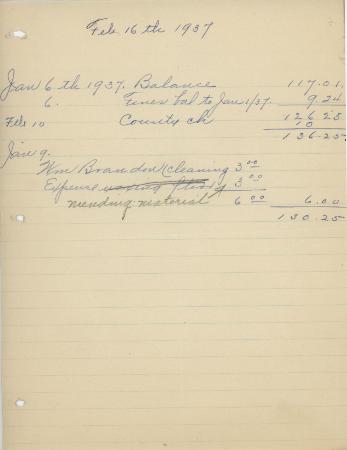 Feb 16 th 1937
Jan 6 th 1937. Balance 117.01
6. Fines bal to Jan 1/37. 9.24
126 25
Feb 10 County ch 10
136.25
Jan 9.
Wm Brandon (Cleaning 3 00
Expense 3 00
mending material 6 00 6.00
130.25